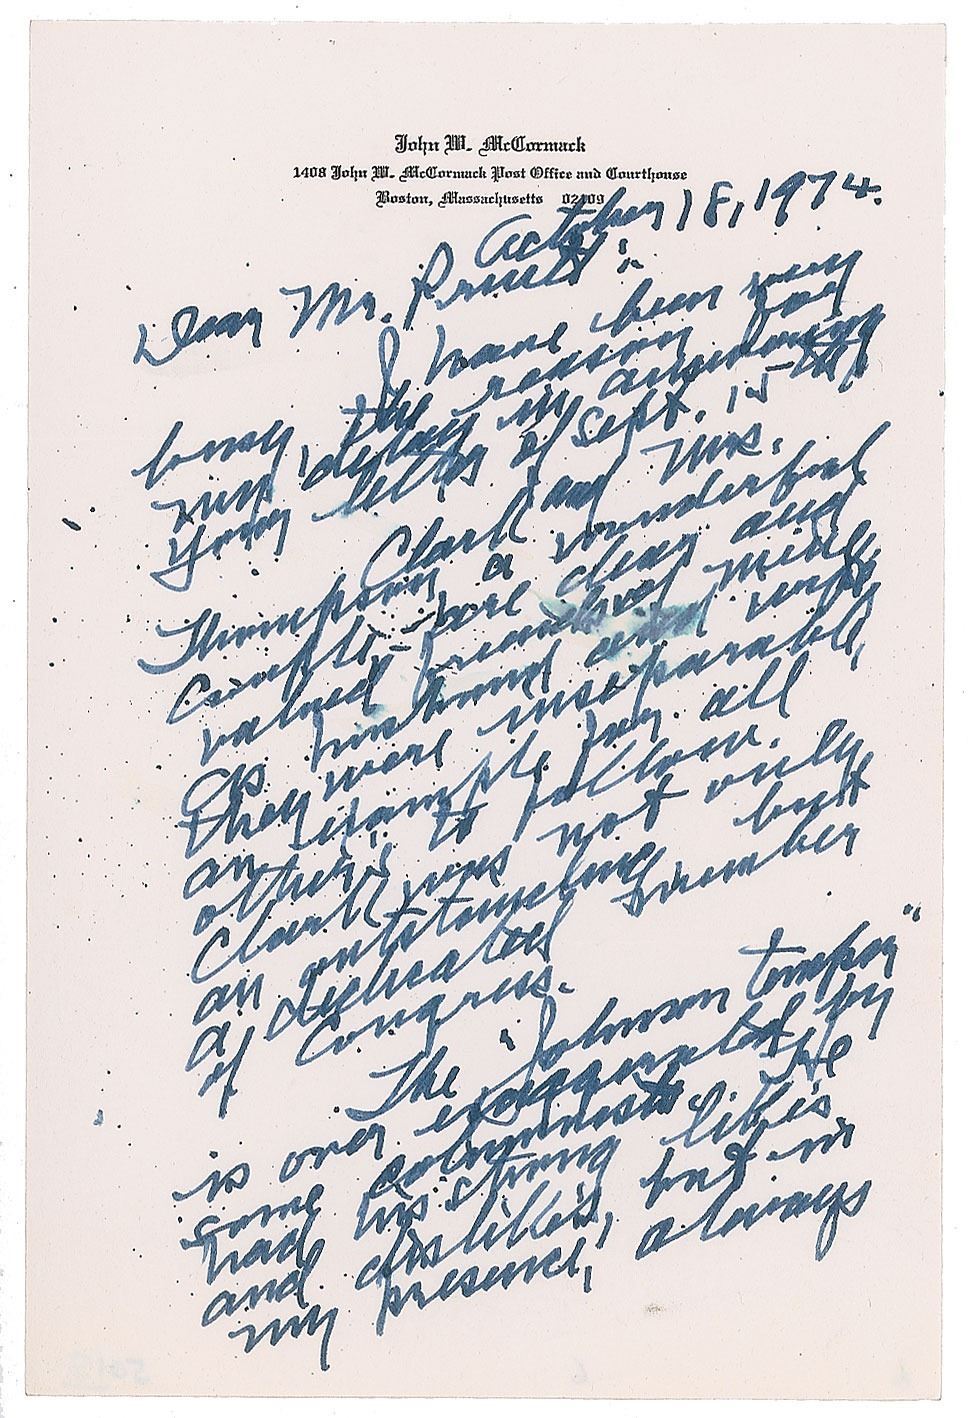 John W. McCormack
1408 John W. McCormack Post Office and Courthouse
Boston, Massachusetts 02109
October 18, 1974.
Dear Mr.
I have been very
busy, the reason for
my delay in answering
your letter of Sept. 15th
Clark and Mrs.
Thompson a wonderful
couple - were dear and
valued friends of mine.
As husband and wife
they were inseparable,
an example for all
others to follow.
Clark was not only
an outstanding but
a dedicated member
of Congress.
The "Johnson temper"
is over exaggerated by
some columnists. He
had his strong likes
and dislikes, but in
my presence, always